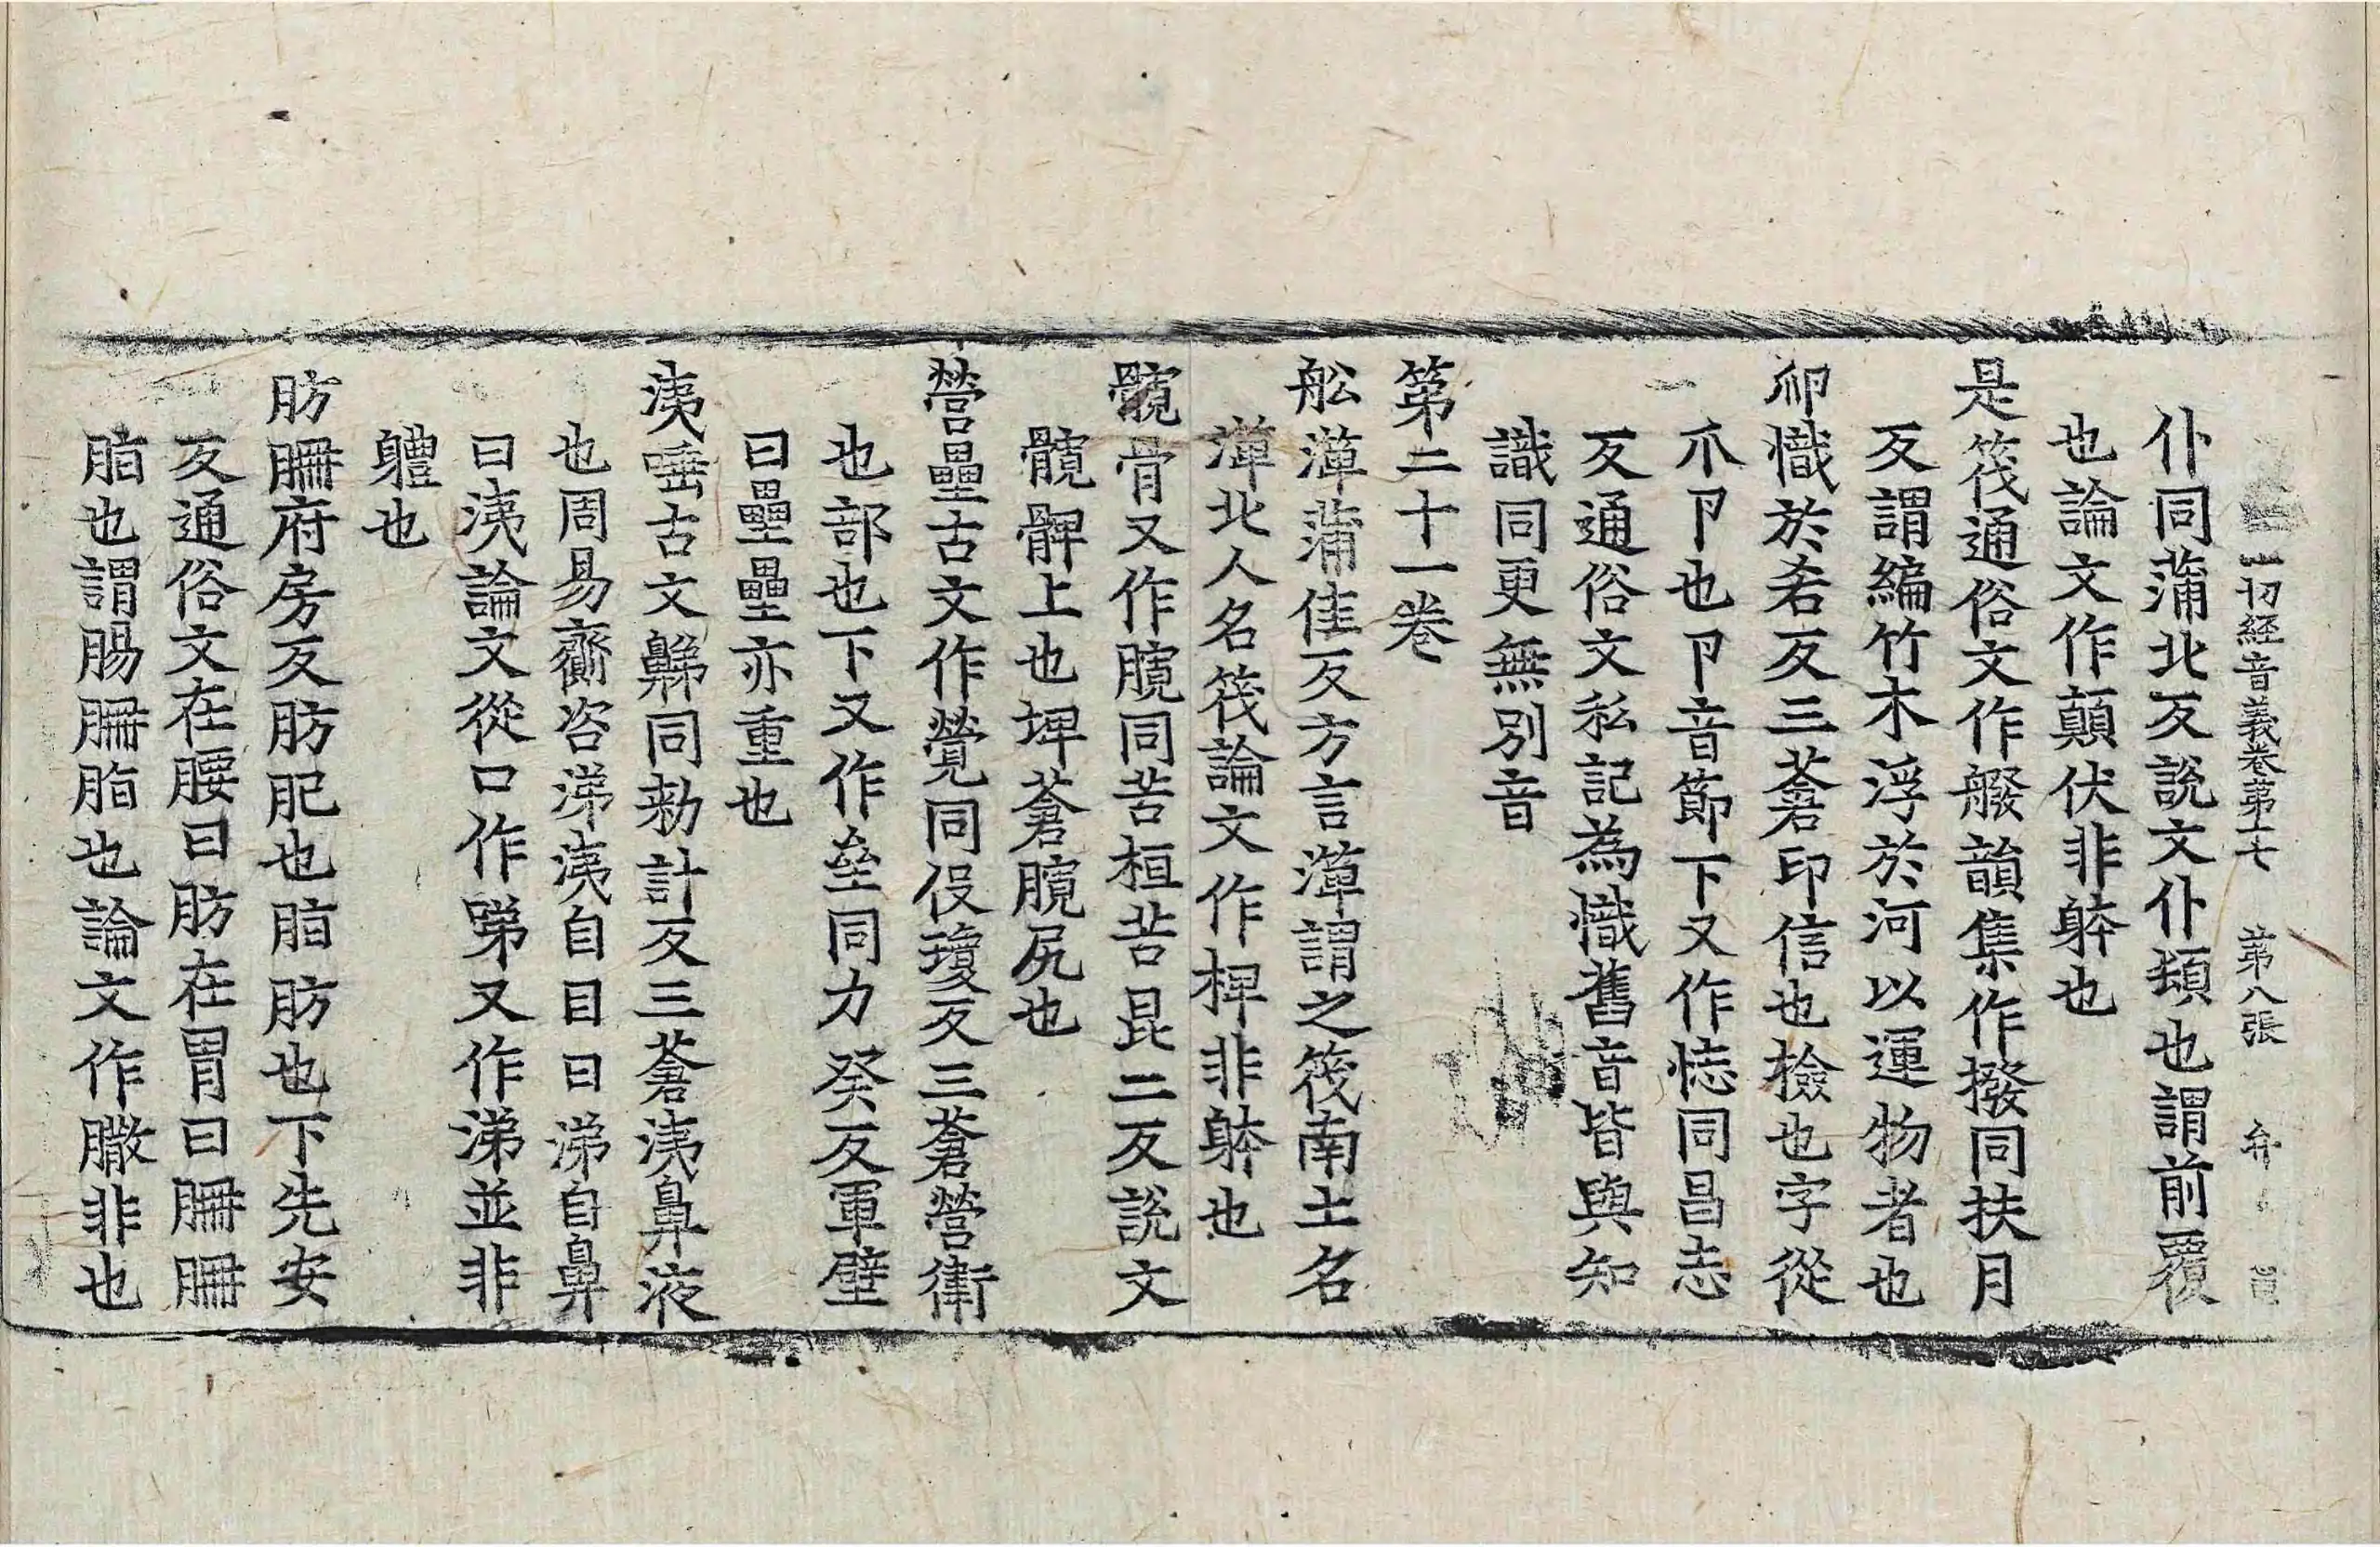 一切經音義卷第十七　第八張　弁
仆同蒲北反說文仆頓也謂前覆
也論文作顛伏非躰也
是筏通俗文作艐韻集作撥同扶月
反謂編竹木浮於河以運物者也
𠨍幟於㐫反三蒼印信也檢也字從
爪卩也卩音節下又作㤝同昌志
反通俗文私記為幟舊音皆與知
識同更無別音
第二十一卷
舩𥱼蒲佳反方言𥱼謂之筏南土名
𥱼北人名筏論文作椑非躰也
髖骨又作臗同苦桓苦昆二反說文
髖髀上也埤蒼臗尻也
營壘古文作㷀同伇瓊反三蒼營衛
也部也下又作垒同力癸反軍壁
曰壘壘亦重也
洟唾古文鮷同勑計反三蒼洟鼻液
也周易齎咨涕洟自目曰涕自鼻
曰洟論文從口作㖒又作涕並非
軆也
肪𦙱府房反肪肥也脂肪也下先安
反通俗文在腰曰肪在胃曰𦙱𦙱
脂也謂腸𦙱脂也論文作𦠿非也